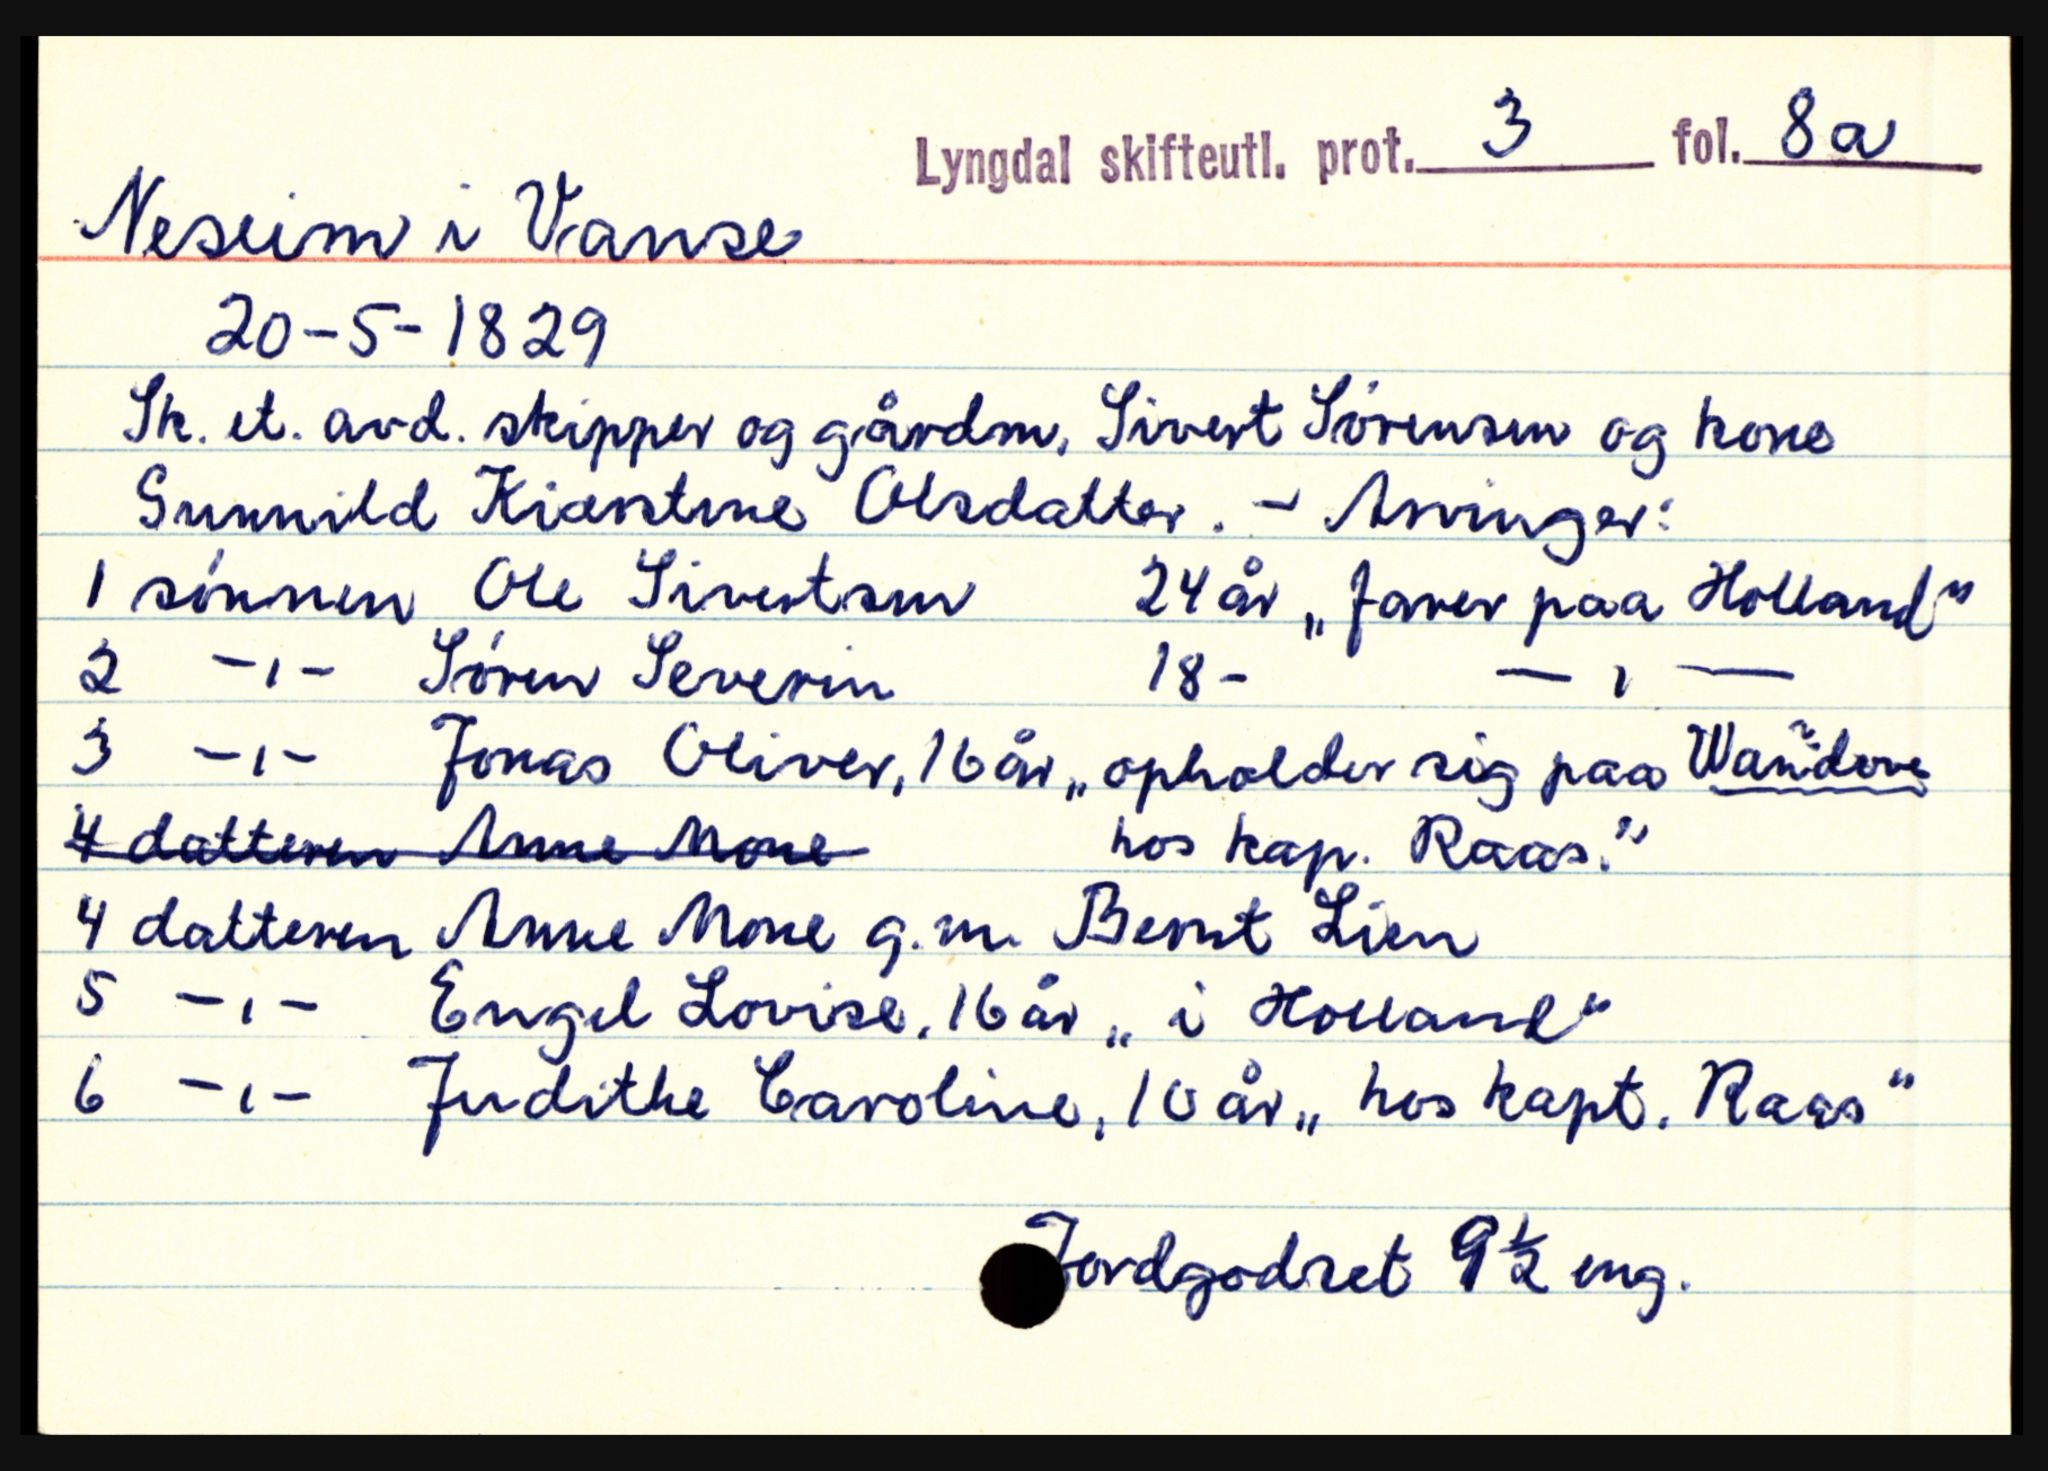 Lyngdal skifteutl. prot. 3 fol. 8a
Neseim i Vanse
20-5-1829
Sk. et. avd. skipper og gårdm. Sivert Sörensen og kone
Gunnild Kiærstine Olsdatter. - Arvinger:
1 sönnen Ole Sivertsen 24 år „farer paa Holland"
2 -,- Sören Severin 18- — , —
3 -,- Jonas Oliver, 16 år „opholder sig paa
4 datteren Anne Mone hos kap. Raas."
4 datteren Anne Mone g.m. Bernt Lien
5 -,- Engel Lovise, 16 år „ i Holland"
6 -,- Judithe Caroline, 10 år „ hos kapt. Raas"
Jordgodset 9½ eng.